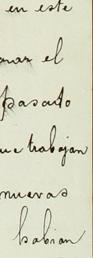 en este
el
pasado
que trabajan
nuevas
habian